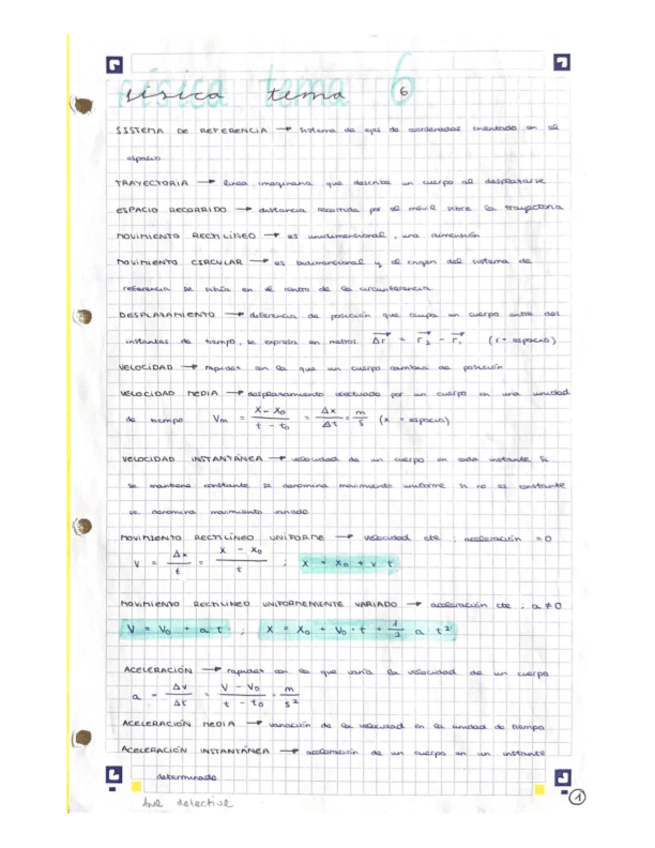 física tema 6
6
SISTEMA DE REFERENCIA → sistema de ejes de coordenadas orientado en el
espacio
TRAYECTORIA → línea imaginaria que describe un cuerpo al desplazarse
ESPACIO RECORRIDO → distancia recorrida por el móvil sobre la trayectoria
MOVIMIENTO RECTILÍNEO → es unidimensional, una dimensión
MOVIMIENTO CIRCULAR → es bidimensional y el origen del sistema de
referencia se sitúa en el centro de la circunferencia
DESPLAZAMIENTO → diferencia de posición que ocupa un cuerpo entre dos
instantes de tiempo, se expresa en metros. Δr = r₂ - r₁ (r = espacio)
VELOCIDAD → rapidez con la que un cuerpo cambia de posición
VELOCIDAD MEDIA → desplazamiento efectuado por un cuerpo en una unidad
de tiempo Vm = x - x₀ / t - t₀ = Δx / Δt = m / s (x = espacio)
VELOCIDAD INSTANTÁNEA → velocidad de un cuerpo en cada instante si
se mantiene constante se denomina movimiento uniforme si no es constante
se denomina movimiento variado
MOVIMIENTO RECTILÍNEO UNIFORME → velocidad cte ; aceleración = 0
v = Δx / t = x - x₀ / t ; x = x₀ + v t
MOVIMIENTO RECTILINEO UNIFORMEMENTE VARIADO → aceleración cte ; a ≠ 0
V = V₀ + a t ; X = X₀ + V₀ · t + 1/2 a t²
ACELERACIÓN → rapidez con la que varía la velocidad de un cuerpo
a = Δv / Δt = V - V₀ / t - t₀ = m / s²
ACELERACIÓN MEDIA → variación de la velocidad en la unidad de tiempo
ACELERACIÓN INSTANTÁNEA → aceleración de un cuerpo en un instante
determinado
detective
1